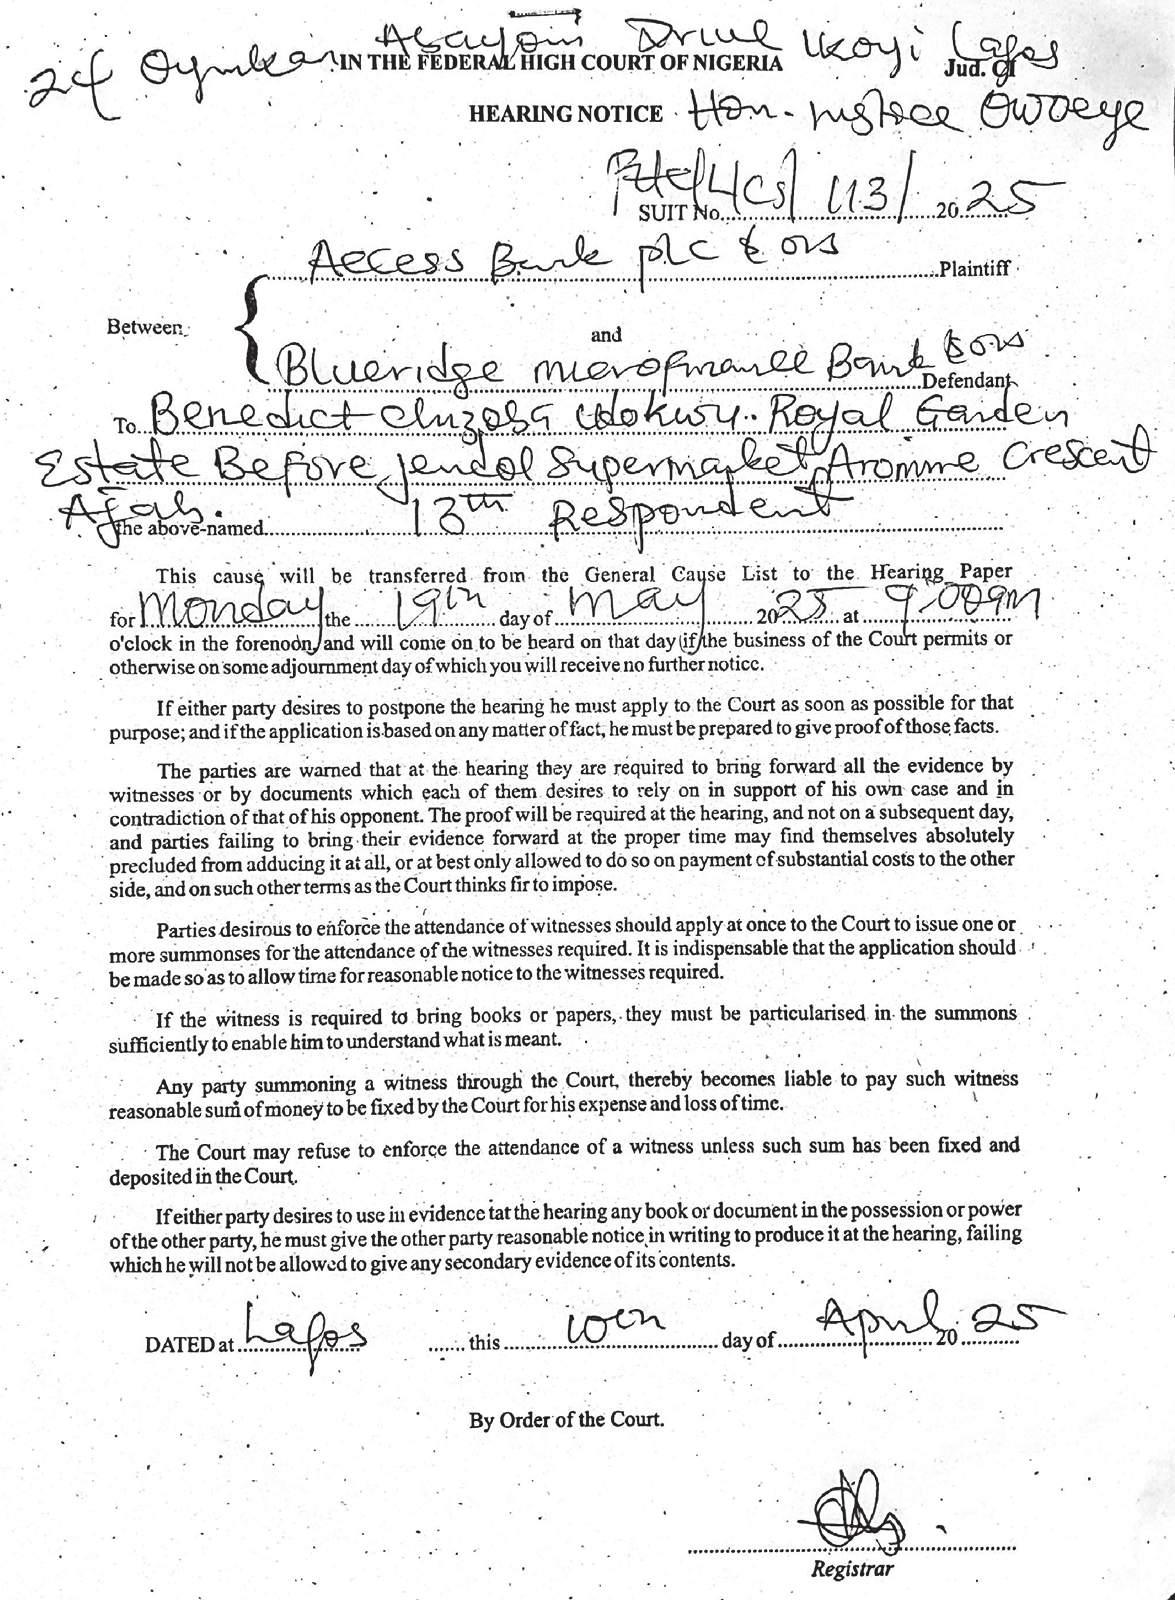 24 Oyinkan Abayomi Drive Ikoyi Lagos
IN THE FEDERAL HIGH COURT OF NIGERIA Jud. C1
HEARING NOTICE Hon. Justice Owoeye
SUIT No. FHC/L/CS/113/2025
Access Bank plc & ors Plaintiff
Between
and
Blueridge microfinance Bank & ors Defendant
To Benedict Udokwu.. Royal Garden
Estate Before Jendol Supermarket Crescent
Ajah.
the above-named 13th Respondent
This cause will be transferred from the General Cause List to the Hearing Paper
for Monday the 19th day of May 2025 at 9:00am
o'clock in the forenoon, and will come on to be heard on that day (if the business of the Court permits or
otherwise on some adjournment day of which you will receive no further notice.
If either party desires to postpone the hearing he must apply to the Court as soon as possible for that
purpose; and if the application is based on any matter of fact, he must be prepared to give proof of those facts.
The parties are warned that at the hearing they are required to bring forward all the evidence by
witnesses or by documents which each of them desires to rely on in support of his own case and in
contradiction of that of his opponent. The proof will be required at the hearing, and not on a subsequent day,
and parties failing to bring their evidence forward at the proper time may find themselves absolutely
precluded from adducing it at all, or at best only allowed to do so on payment of substantial costs to the other
side, and on such other terms as the Court thinks fir to impose.
Parties desirous to enforce the attendance of witnesses should apply at once to the Court to issue one or
more summonses for the attendance of the witnesses required. It is indispensable that the application should
be made so as to allow time for reasonable notice to the witnesses required.
If the witness is required to bring books or papers, they must be particularised in the summons
sufficiently to enable him to understand what is meant.
Any party summoning a witness through the Court, thereby becomes liable to pay such witness
reasonable sum of money to be fixed by the Court for his expense and loss of time.
The Court may refuse to enforce the attendance of a witness unless such sum has been fixed and
deposited in the Court.
If either party desires to use in evidence tat the hearing any book or document in the possession or power
of the other party, he must give the other party reasonable notice in writing to produce it at the hearing, failing
which he will not be allowed to give any secondary evidence of its contents.
DATED at Lagos this 10th day of April 2025
By Order of the Court.
Registrar